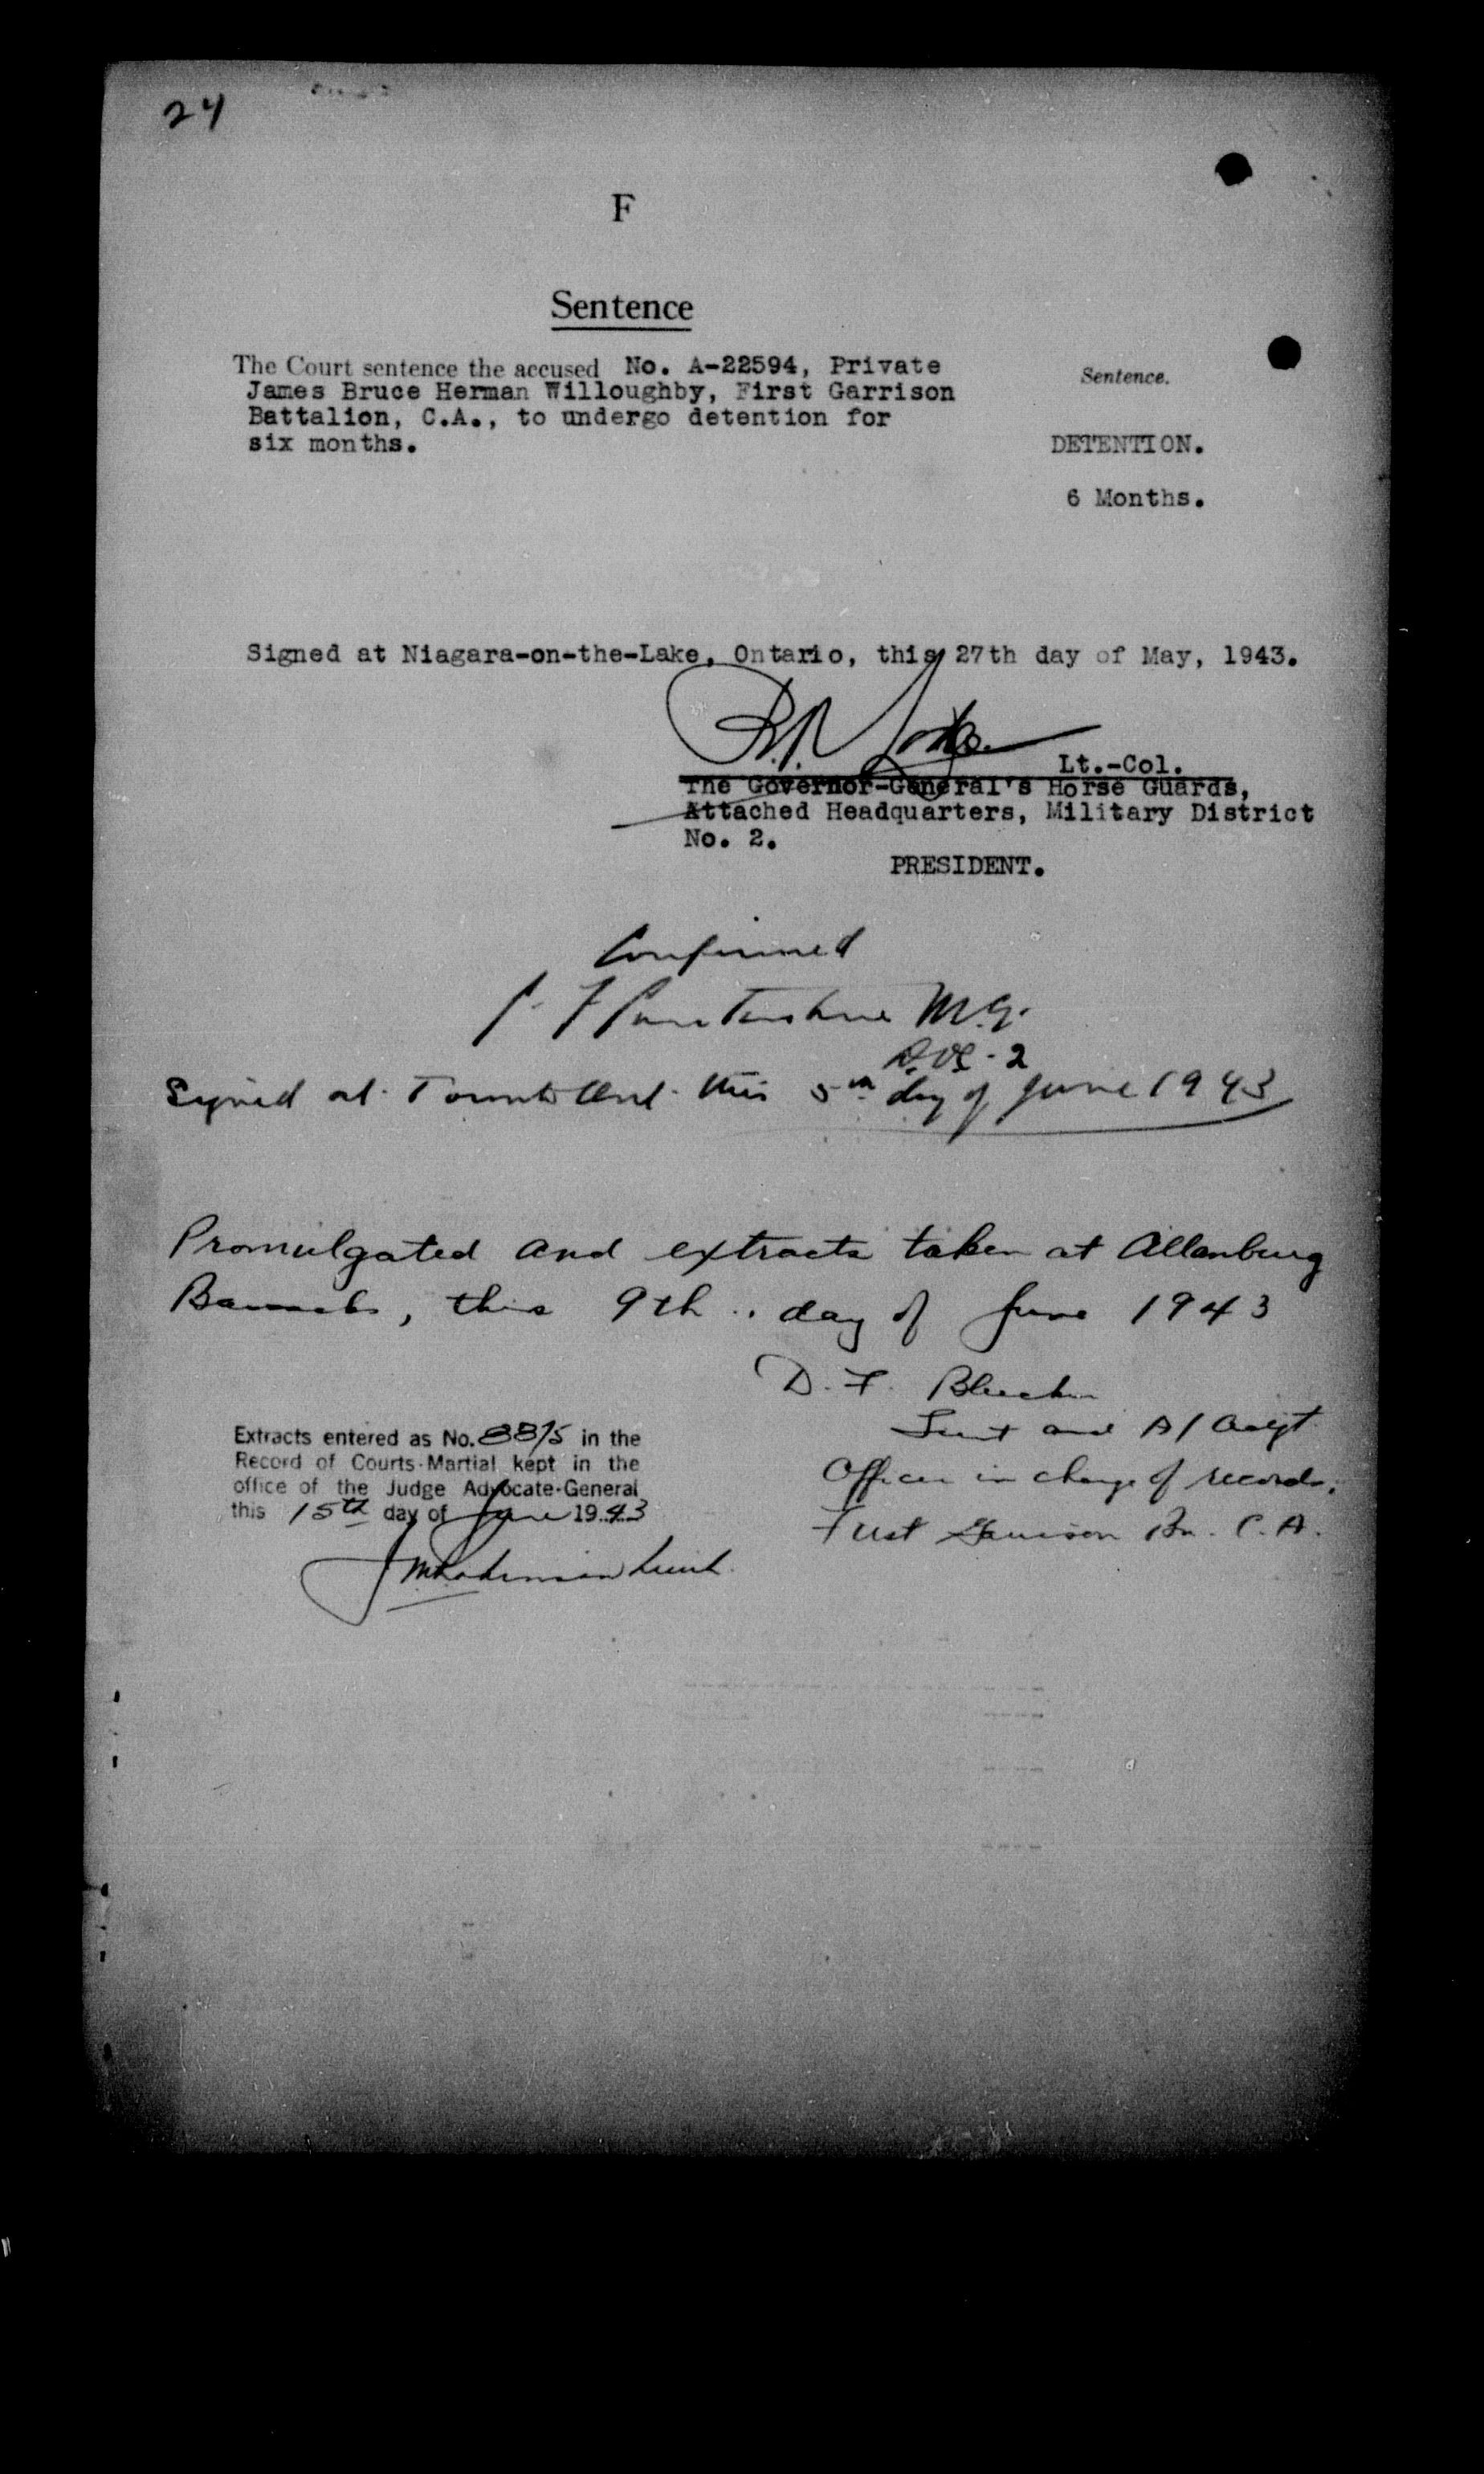 24
F
Sentence
The Court sentence the accused No. A-22594, Private
James Bruce Herman Willoughby, First Garrison
Battalion, C.A., to undergo detention for
six months.
Sentence.
DETENTION.
6 Months.
Signed at Niagara-on-the-Lake, Ontario, this 27th day of May, 1943.
Lt.-Col.
The Governor-General's Horse Guards,
Attached Headquarters, Military District
No. 2.
PRESIDENT.
Confirmed
M.G.
D.O.C. - 2
Signed at Toronto Ont. this 5th day of June 1943
Promulgated and extracts taken at Allanburg
Barracks, this 9th day of June 1943
D. F.
Lieut and A/Adjt
Officer in charge of records,
First Garrison Bn. C.A.
Extracts entered as No. 8815 in the
Record of Courts-Martial kept in the
office of the Judge Advocate-General
this 15th day of June 1943